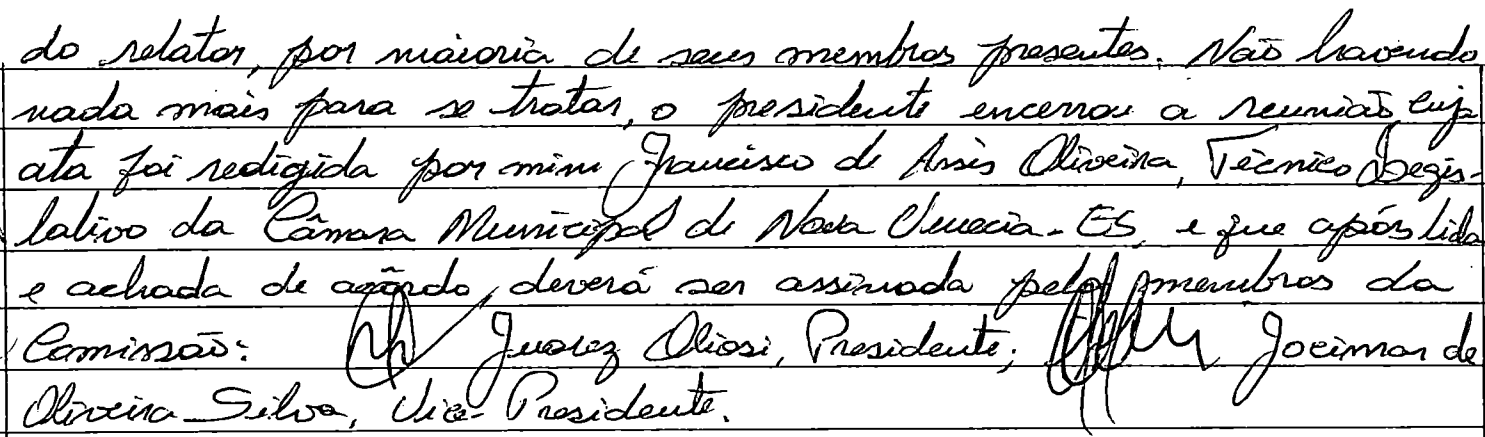 do relator, por maioria de seus membros presentes. Não havendo
nada mais para se tratar, o presidente encerrou a reunião cuja
ata foi redigida por mim Francisco de Assis Oliveira, Técnico Legis-
lativo da Câmara Municipal de Nova Venecia-ES, e que após lida
e achada de acôrdo, deverá ser assinada pelos membros da
Comissão: Juarez Oliosi, Presidente; Jocimar de
Oliveira Silva, Vice-Presidente.